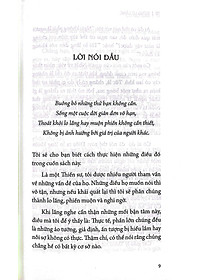 LỜI NÓI ĐẦU
Buông bỏ những thứ bạn không cần.
Sống một cuộc đời giản đơn vô hạn,
Thoát khỏi lo lắng hay muộn phiền không cần thiết,
Không bị ảnh hưởng bởi giá trị của người khác.
Tôi sẽ cho bạn biết cách thực hiện những điều đó
trong cuốn sách này:
Là một Thiền sư, tôi được nhiều người tham vấn
về những vấn đề của họ. Những điều họ muốn nói thì vô
vàn, tựu nhưng nếu khái quát lại thì có thể phân thành
lo lắng, phiền muộn và nghi ngờ.
Khi lắng nghe cẩn thận những mối bận tâm này,
điều mà tôi để ý thấy là: Thực tế, phần lớn chúng đều
là những ảo tưởng, giả định, ấn tượng bị hiểu lầm hay
nỗi sợ không có thực. Thậm chí, có thể nói rằng chúng
chẳng hề có bất kỳ cơ sở nào.
9